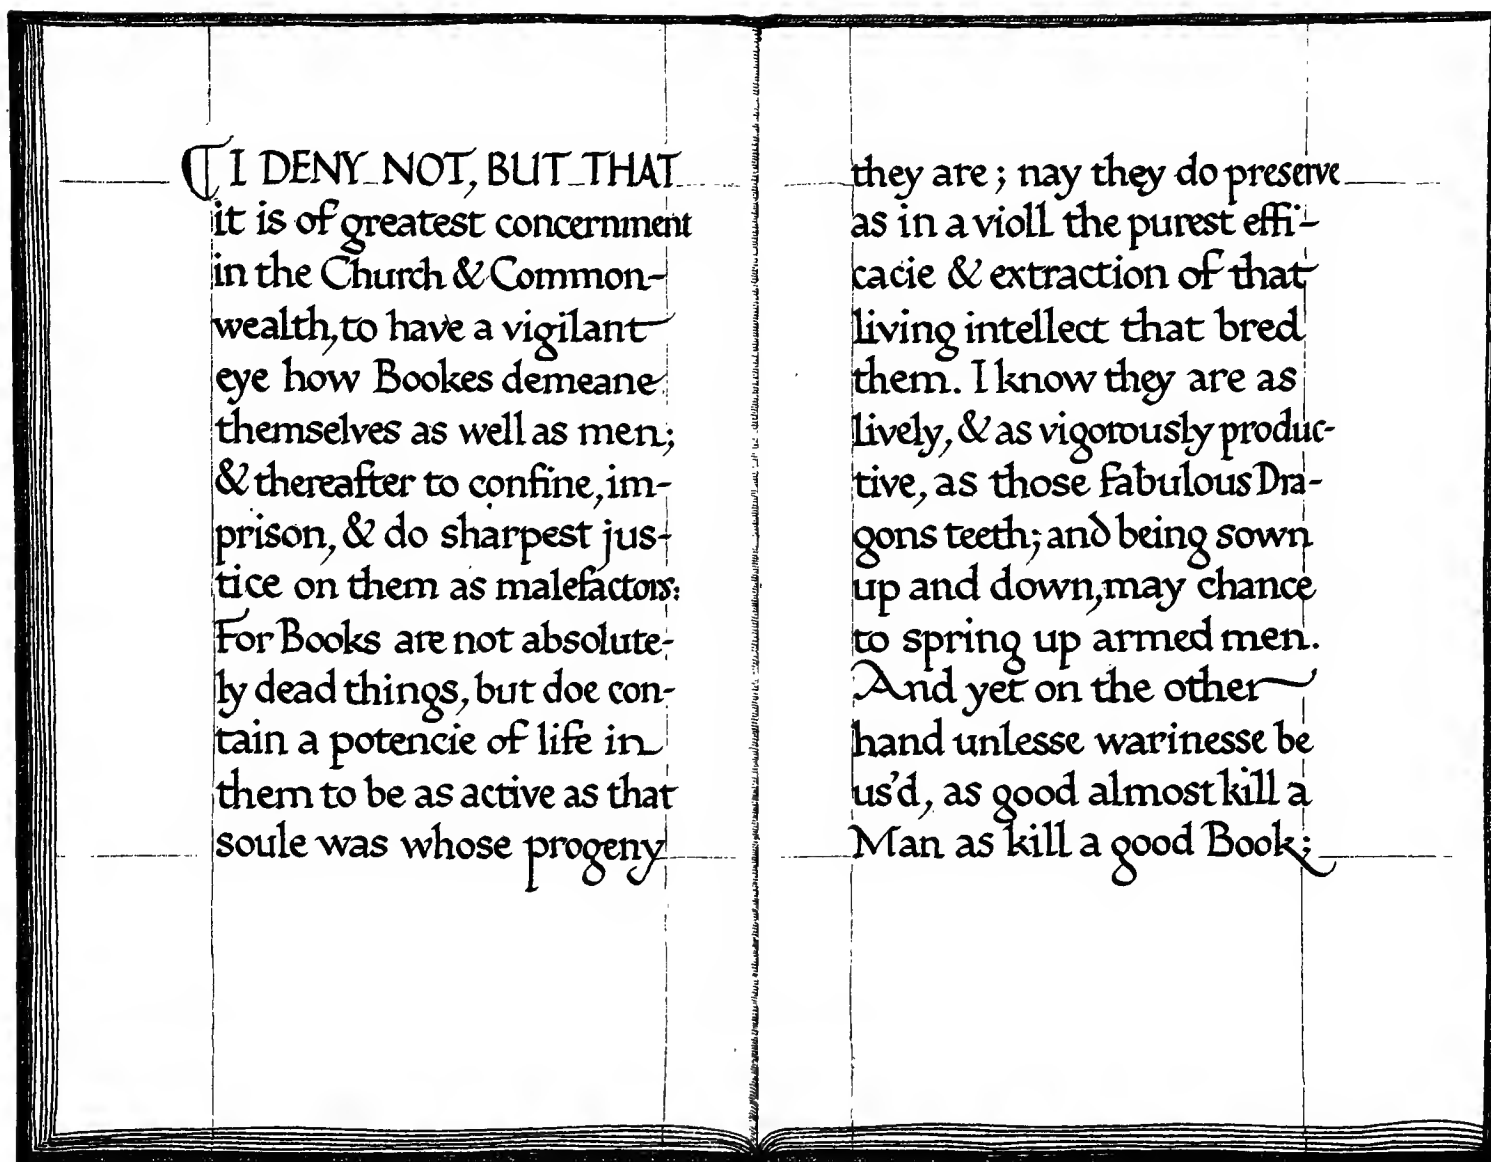 ¶ I DENY NOT, BUT THAT
it is of greatest concernment
in the Church & Common-
wealth, to have a vigilant
eye how Bookes demeane
themselves as well as men;
& thereafter to confine, im-
prison, & do sharpest jus-
tice on them as malefactors:
For Books are not absolute-
ly dead things, but doe con-
tain a potencie of life in
them to be as active as that
soule was whose progeny
they are; nay they do preserve
as in a violl the purest effi-
cacie & extraction of that
living intellect that bred
them. I know they are as
lively, & as vigorously produc-
tive, as those fabulous Dra-
gons teeth; and being sown
up and down, may chance
to spring up armed men.
And yet on the other
hand unlesse warinesse be
us'd, as good almost kill a
Man as kill a good Book;